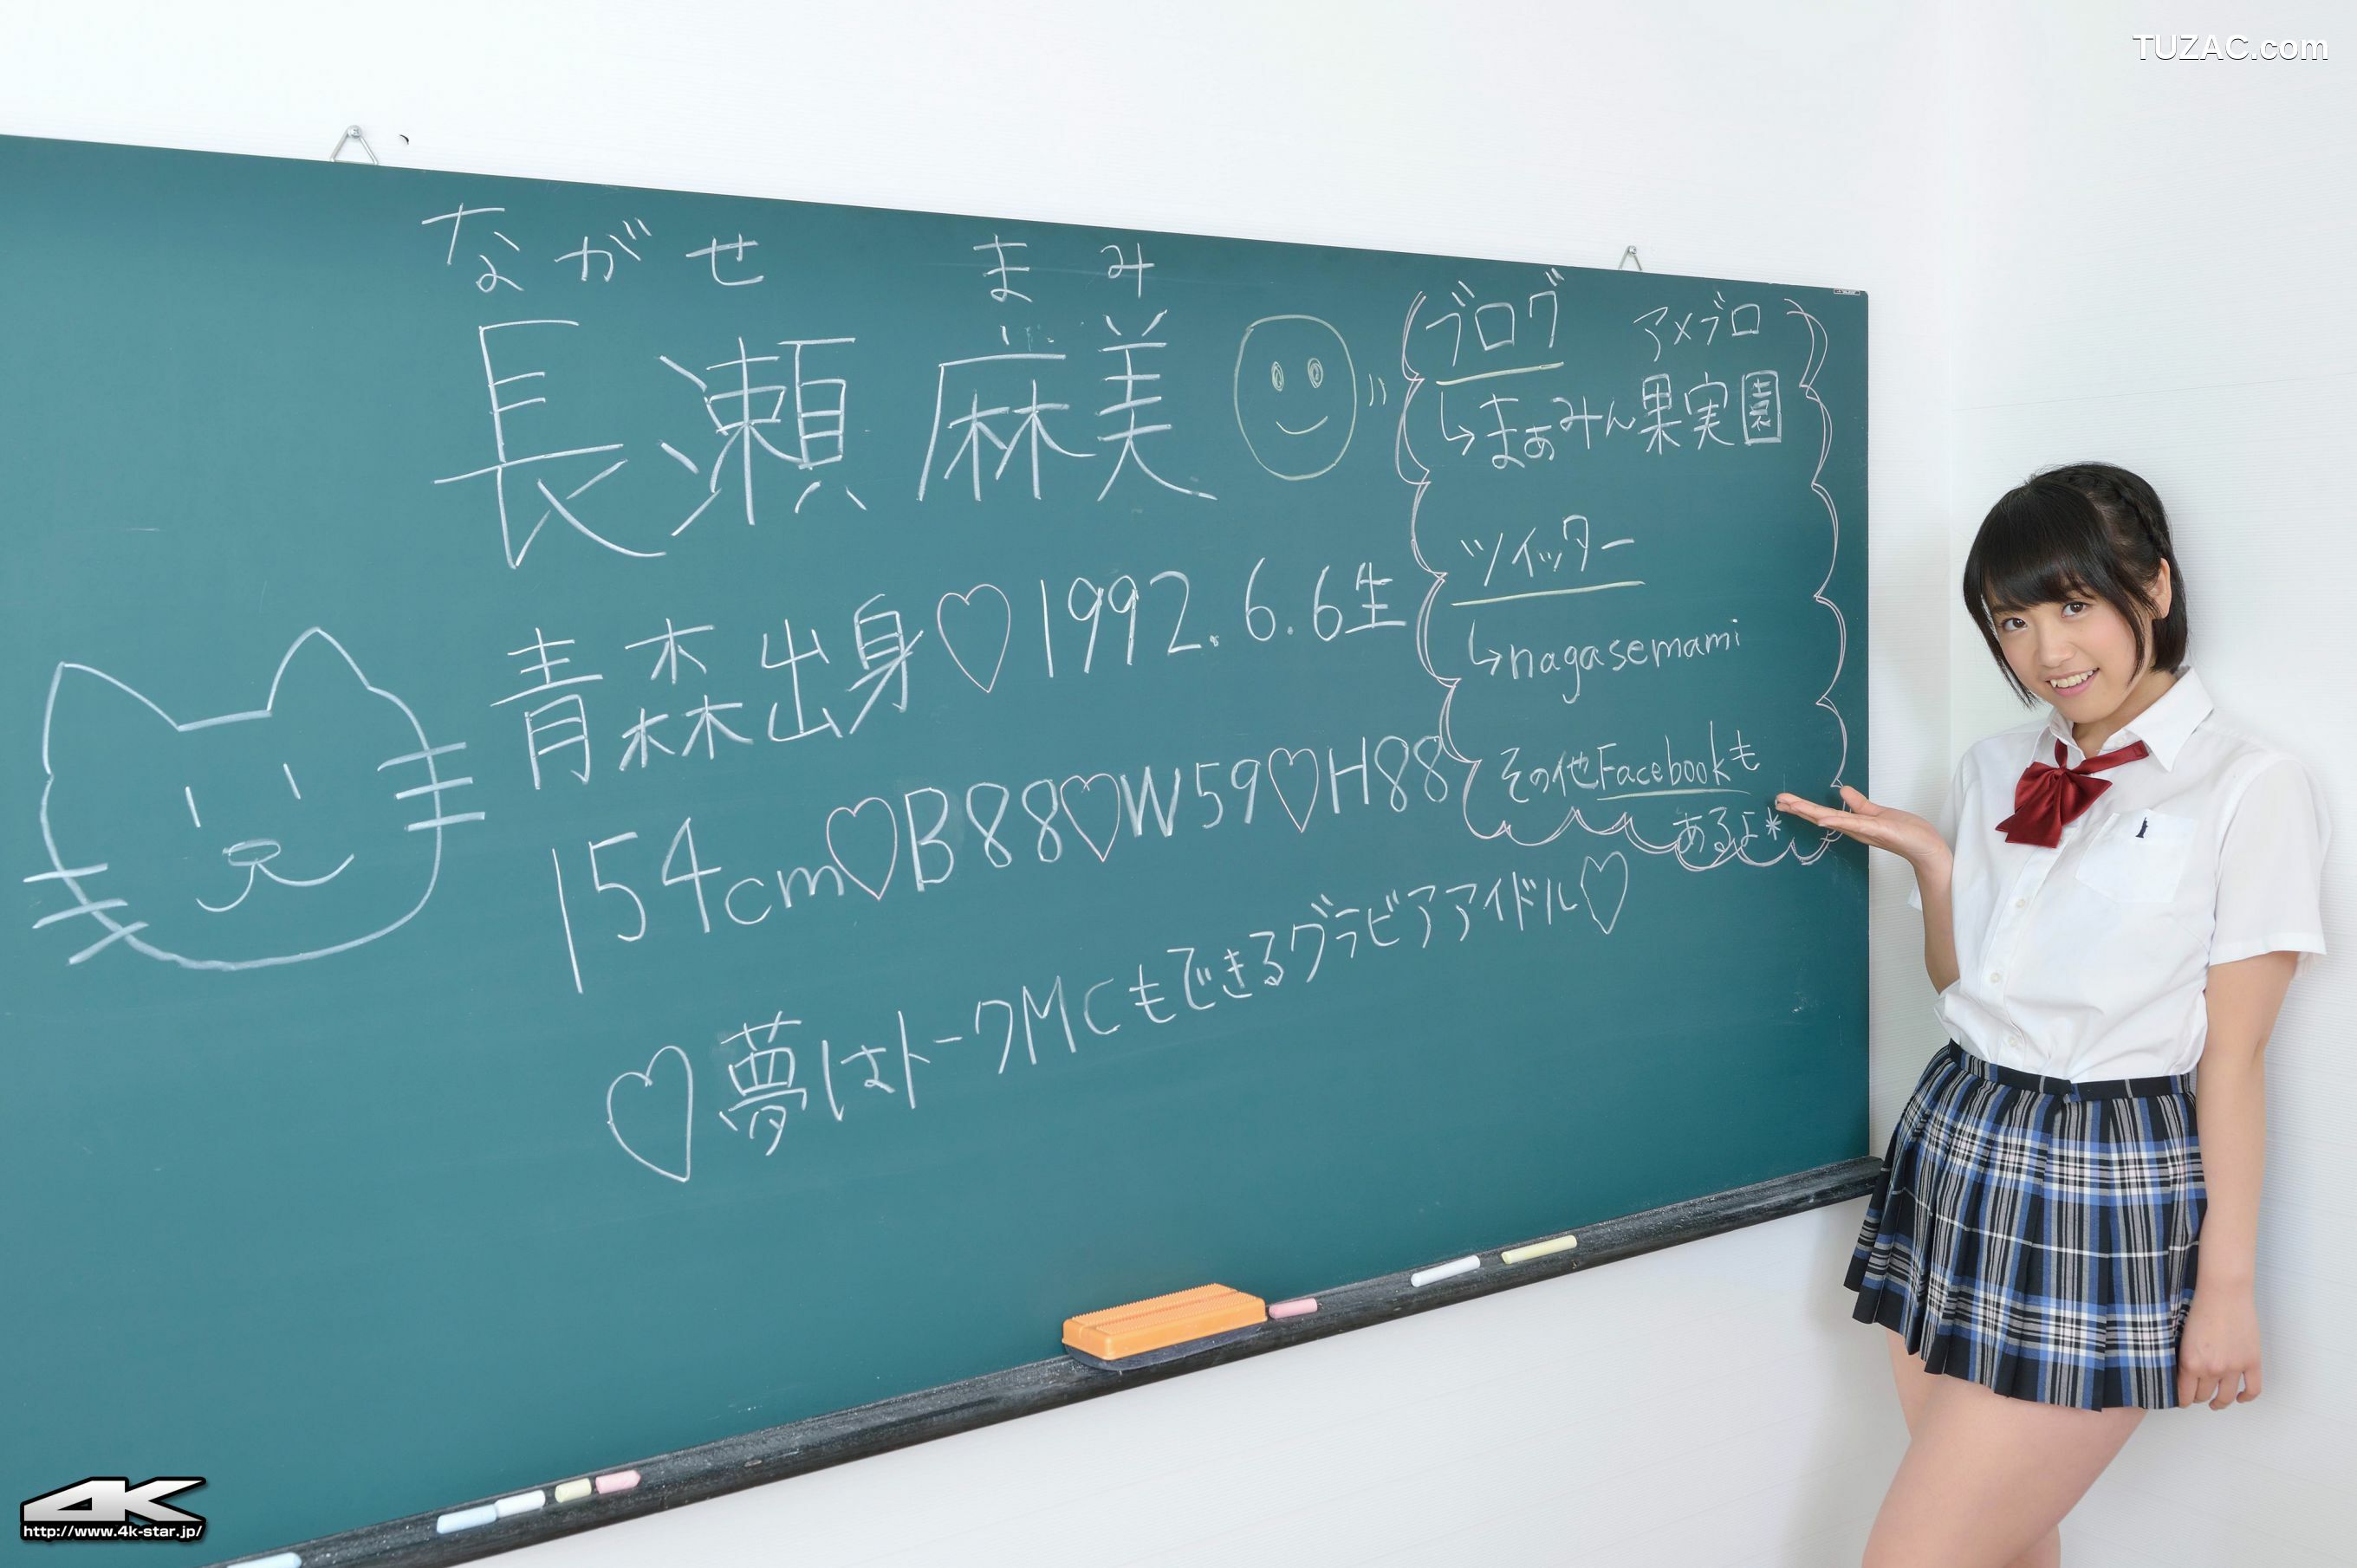 TUZAC.com
ながせ まみ
長瀬 麻美
青森出身♡1992.6.6生
154cm♡B88♡W59♡H88
♡夢はトークMCもできるグラビアアイドル♡
ブログ アメブロ
↳まぁみん果実園
ツイッター
↳nagasemami
その他Facebookも
あるよ*
4K
http://www.4k-star.jp/